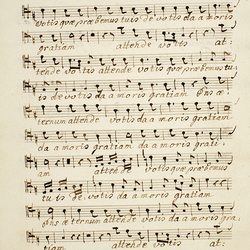 votis quæ præbemus tuis de votis da amoris
gratiam attende votis at:
tende votis attende votis quæ præbemus tu:
is de votis da amoris gratiam ens æ:
ternum attende votis da amoris gratiam
da amoris gratiam da amoris grati:
am attende votis quæ præbemus
tuis de votis da amoris gratiam
ens æternum attende votis da amoris gra
tiam attende votis at: